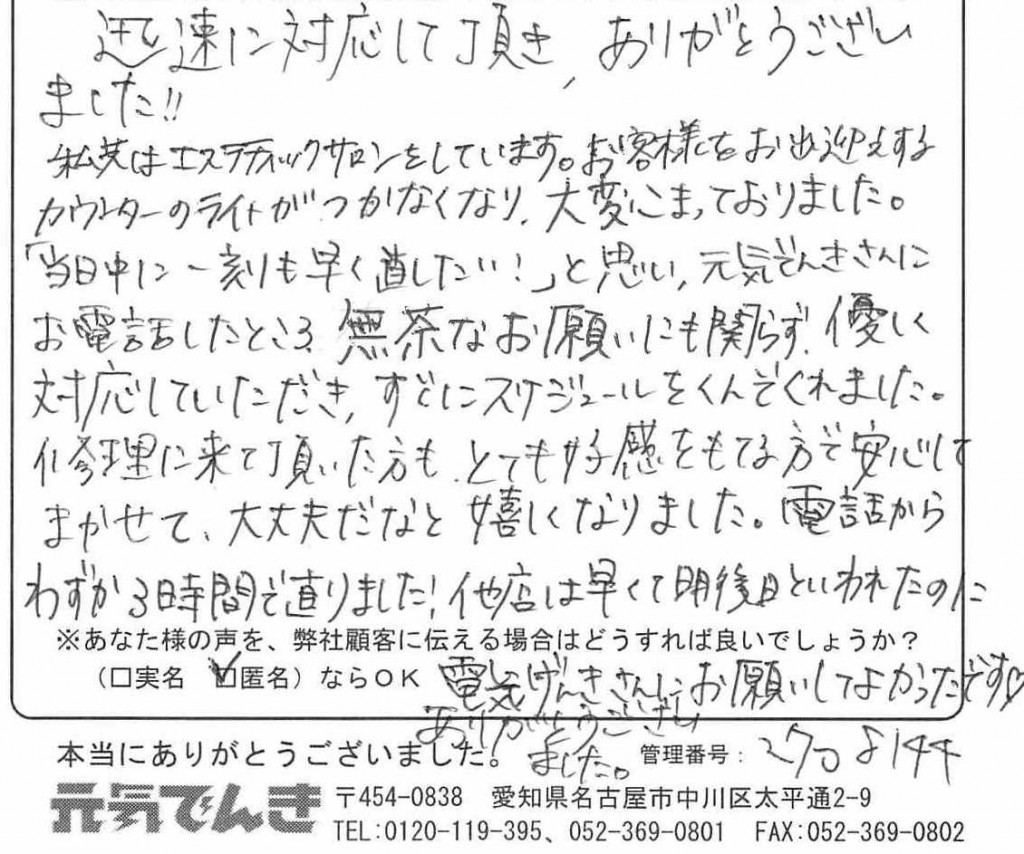 迅速に対応して頂き、ありがとうござい
ました!!
私共はエステティックサロンをしています。お客様をお出迎えする
カウンターのライトがつかなくなり、大変こまっておりました。
「当日中に一刻も早く直したい!」と思い、元気でんきさんに
お電話したところ、無茶なお願いにも関らず、優しく
対応していただき、すぐにスケジュールをくんでくれました。
修理に来て頂いた方も、とても好感をもてる方で安心して
まかせて、大丈夫だなと嬉しくなりました。電話から
わずか3時間で直りました!他店は早くて明後日といわれたのに
※あなた様の声を、弊社顧客に伝える場合はどうすれば良いでしょうか?
(口実名 ☑匿名)ならOK
電気げんきさんにお願いしてよかったです♡
ありがとうござい
ました。
本当にありがとうございました! 管理番号:
元気でんき
〒454-0838 愛知県名古屋市中川区太平通2-9
TEL:0120-119-395、052-369-0801 FAX:052-369-0802